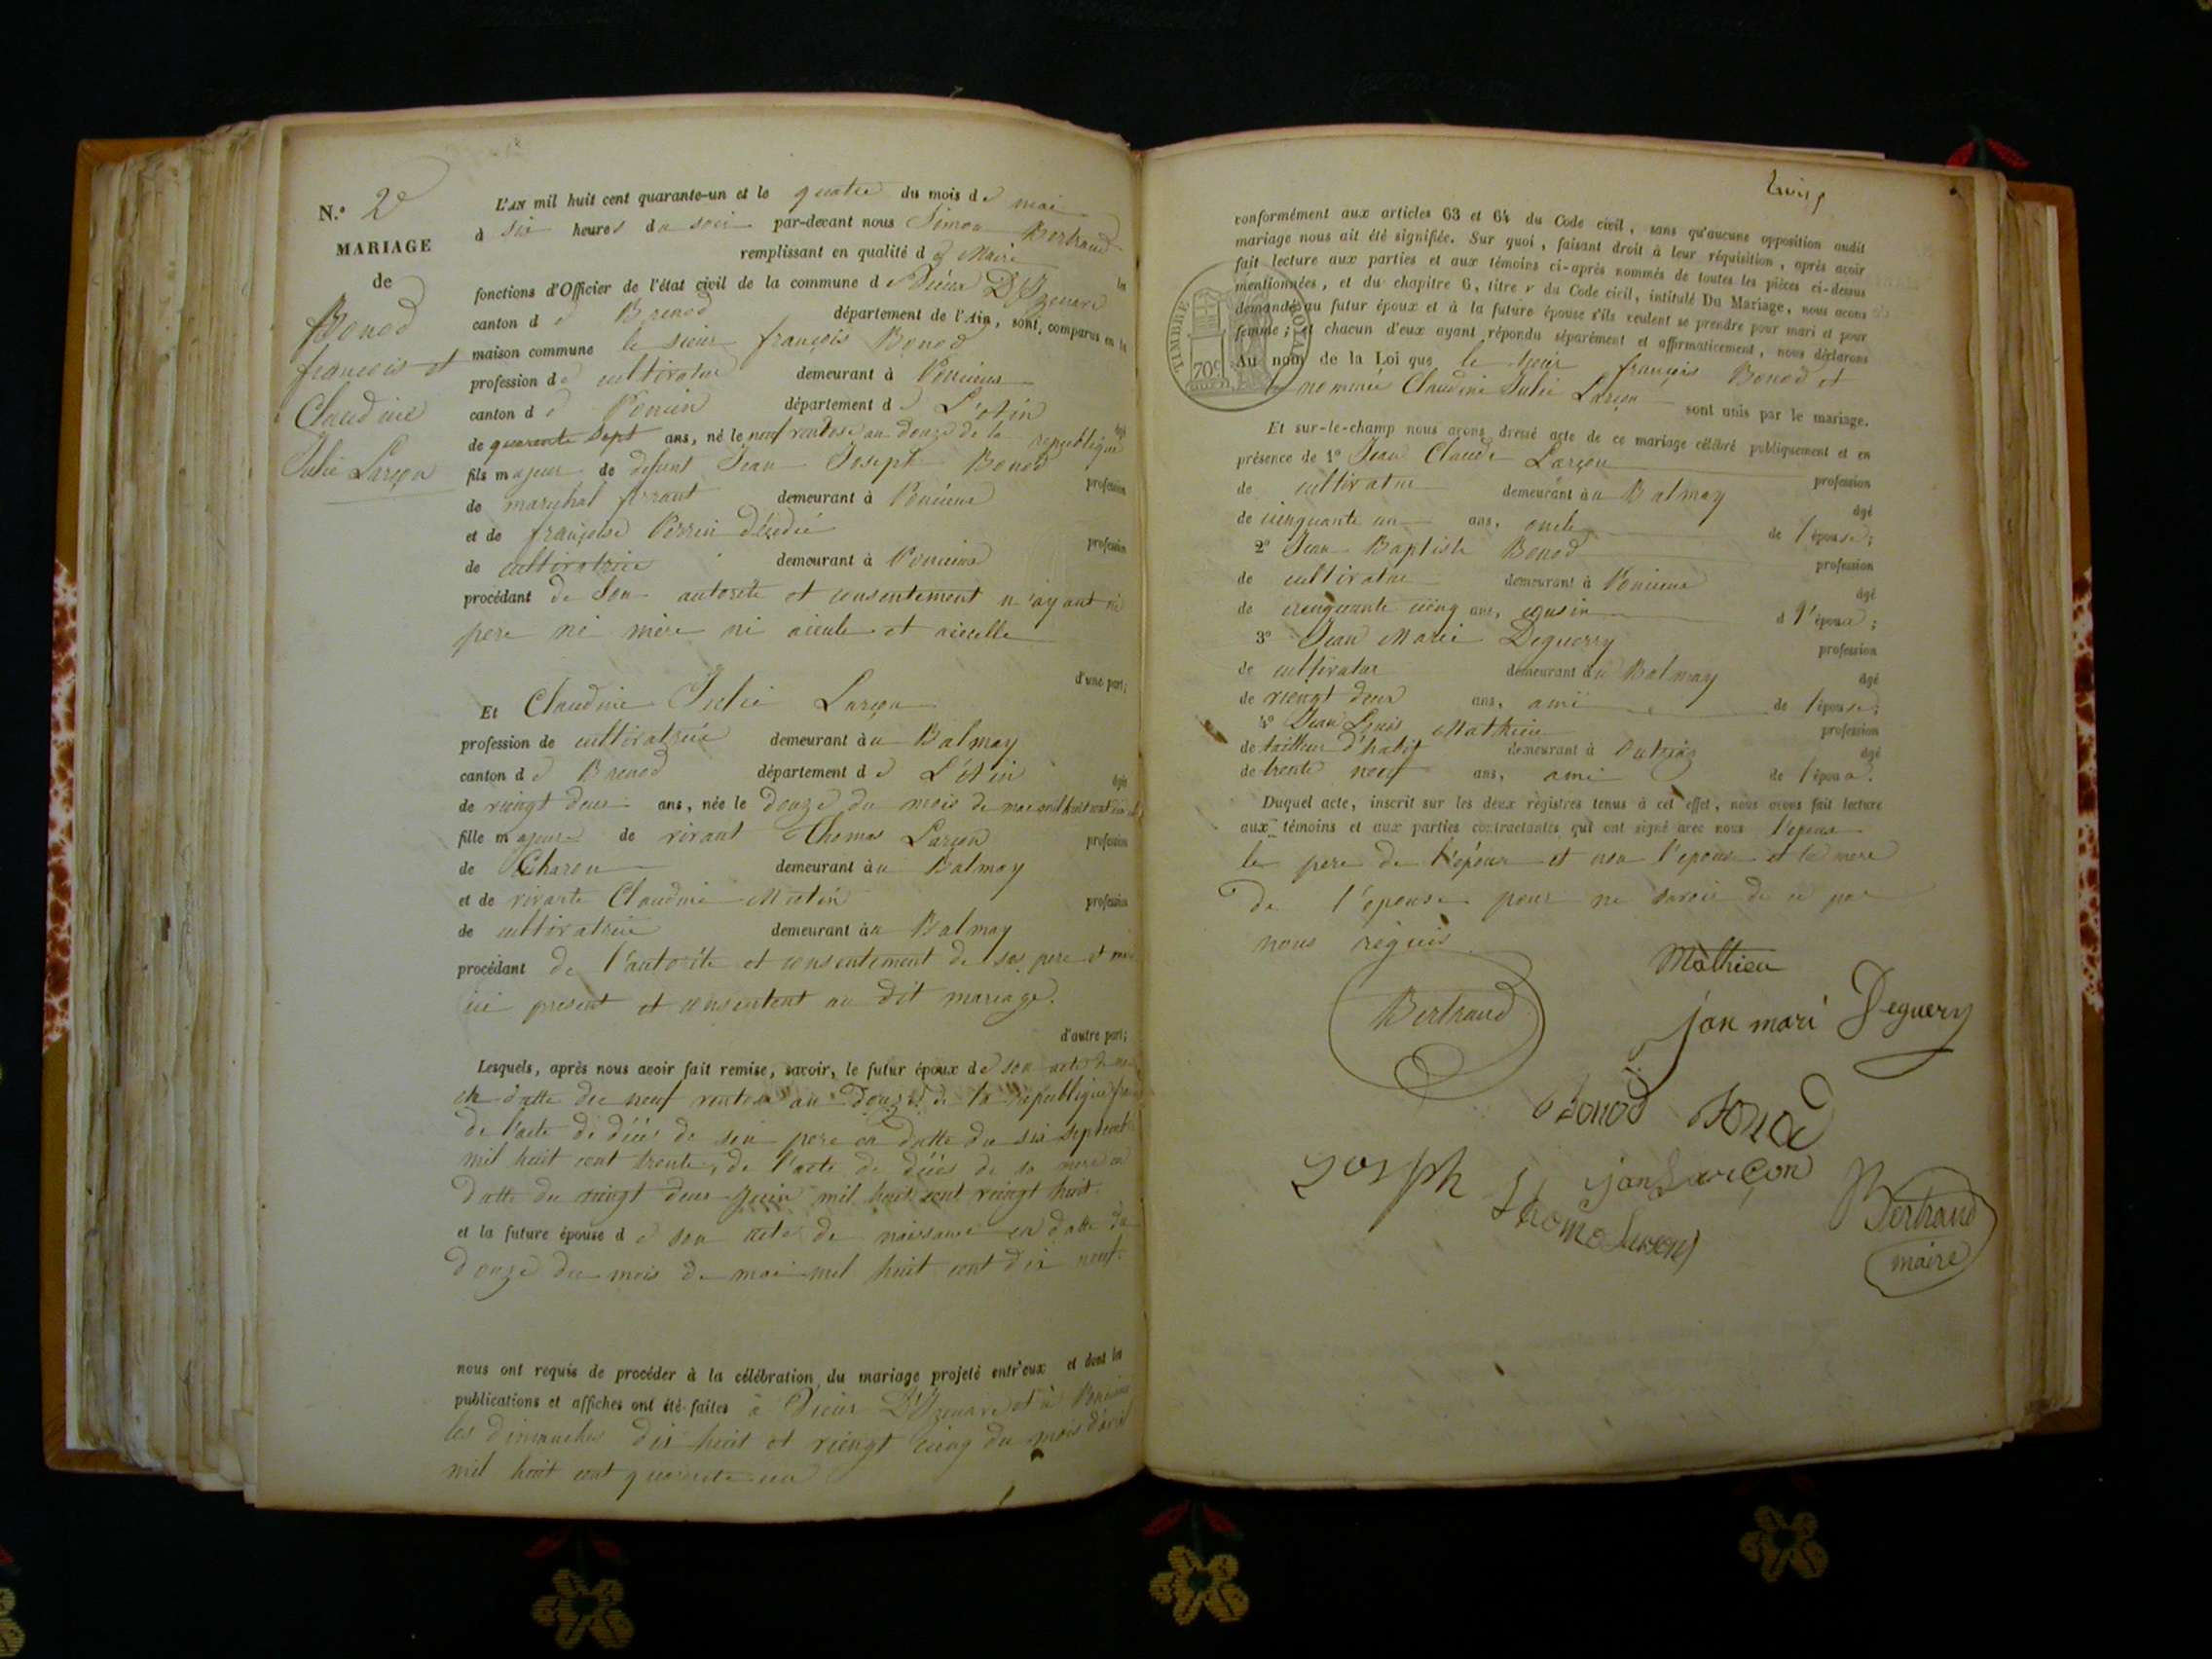 N.° 2e
MARIAGE
de
Bonod
françois et
Claudine
Julie Larçon
L'AN mil huit cent quarante-un et le quatre du mois de mai
à six heures du soir par-devant nous Simon Bertrand
remplissant en qualité de Maire les
fonctions d'Officier de l'état civil de la commune de Vieux D'Izenave
canton de Brenod département de l'Ain, sont comparus en la
maison commune le sieur françois Bonod
profession de cultivateur demeurant à Poncieux
canton de Poncin département de L'Ain âgé
de quarante sept ans, né le neuf ventose an douze de la republique
fils majeur de defunt Jean Joseph Bonod profession
de maréchal ferrant demeurant à Poncieux
et de françoise Perrin décédée profession
de cultivatrice demeurant à Poncieux
procédant de Son autorité et consentement n'ayant ni
pere ni mère ni aieule et aieulle
d'une part;
Et Claudine Julie Larçon
profession de cultivatrice demeurant au Balmay
canton de Brenod département de L'Ain âgée
de vingt deux ans, née le douze du mois de mai mil huit cent dix neuf
fille majeure de vivant Thomas Larçon profession
de Charon demeurant au Balmay
et de vivante Claudine profession
de cultivatrice demeurant au Balmay
procédant de l'autorité et consentement de ses pere et mere
ici present et consentent au dit mariage.
d'autre part;
Lesquels, après nous avoir fait remise, savoir, le futur époux de son acte de
en datte du neuf ventose an Douze de la république
de l'acte de décé de son pere en datte du six septembre
mil huit cent trente, de l'acte de décès de sa mere en
datte du vingt deux Juin mil huit cent vingt huit
et la future épouse de son acte de naissance en datte du
douze du mois de mai mil huit cent dix neuf.
nous ont requis de procéder à la célébration du mariage projeté entr'eux et dont les
publications et affiches ont été faites à Vieux D'Izenave et à Poncieux
les dimanches dix huit et vingt cinq du mois d'avril
mil huit cent quarante un
conformément aux articles 63 et 64 du Code civil, sans qu'aucune opposition audit
mariage nous ait été signifiée. Sur quoi, faisant droit à leur réquisition, après avoir
fait lecture aux parties et aux témoins ci-après nommés de toutes les pièces ci-dessus
mentionnées, et du chapitre 6, titre v du Code civil, intitulé Du Mariage, nous avons
demandé au futur époux et à la future épouse s'ils veulent se prendre pour mari et pour
femme; et chacun d'eux ayant répondu séparément et affirmativement, nous déclarons
TIMBRE ROYAL
70c
Au nom de la Loi que le sieur françois Bonod et
nommée Claudine Julie Larçon sont unis par le mariage.
Et sur-le-champ nous avons dressé acte de ce mariage célébré publiquement et en
présence de 1° Jean Claude Larçon profession
de cultivateur demeurant au Balmay âgé
de cinquante un ans, oncle de l'épouse;
2° Jean Baptiste Bonod profession
de cultivateur demeurant à Poncieux âgé
de cinquante cinq ans, cousin d l'époux;
3° Jean Marie Deguerry profession
de cultivateur demeurant au Balmay âgé
de vingt deux ans, ami de l'épouse;
4° Jean Louis Mathieu profession
de tailleur d'habit demeurant à Outriaz âgé
de trente neuf ans, ami de l'époux.
Duquel acte, inscrit sur les deux registres tenus à cet effet, nous avons fait lecture
aux témoins et aux parties contractantes qui ont signé avec nous l'epoux
le pere de l'épouse et non l'epouse et la mere
de l'épouse pour ne savoir de ce par
nous requis
Mathieu
Bertrand
jan mari Deguery
Bonod Bonod
Joseph jan Larçon
thoma larçon
Bertrand
maire